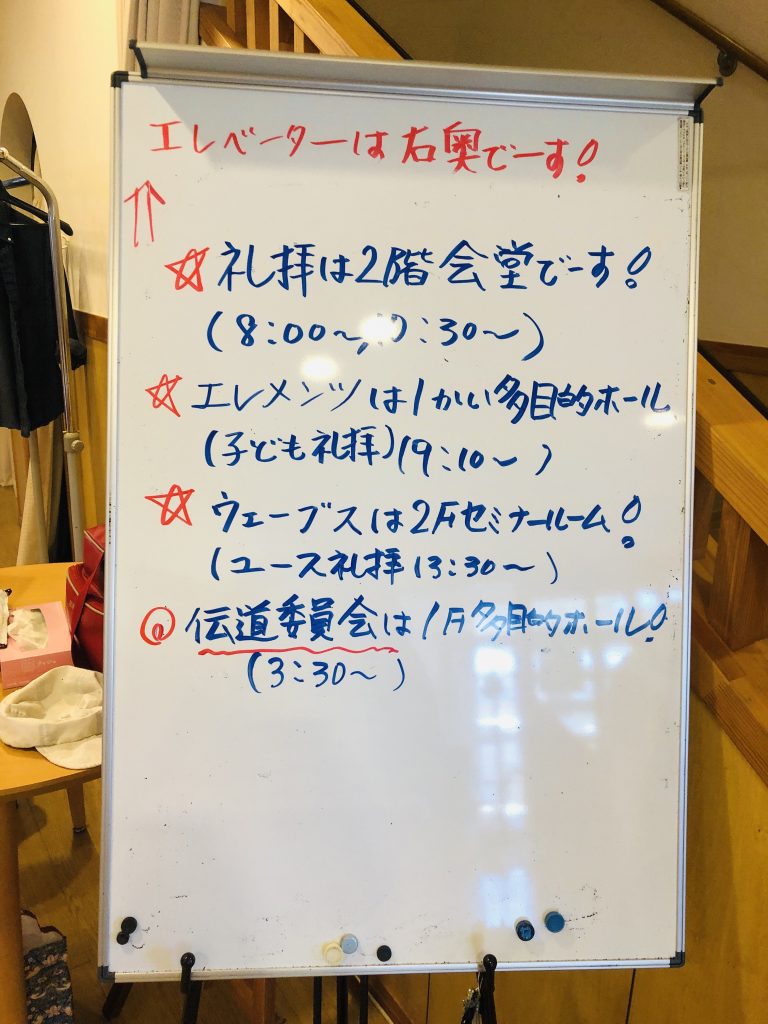 エレベーターは右奥でーす!
☆ 礼拝は2階会堂でーす!
(8:00〜, :30〜)
☆ エレメンツは1かい多目的ホール
(子ども礼拝)(9:10〜 )
☆ ウェーブスは2Fセミナールーム!
(ユース礼拝 13:30〜 )
@ 伝道委員会は1F多目的ホール!
(3:30〜 )